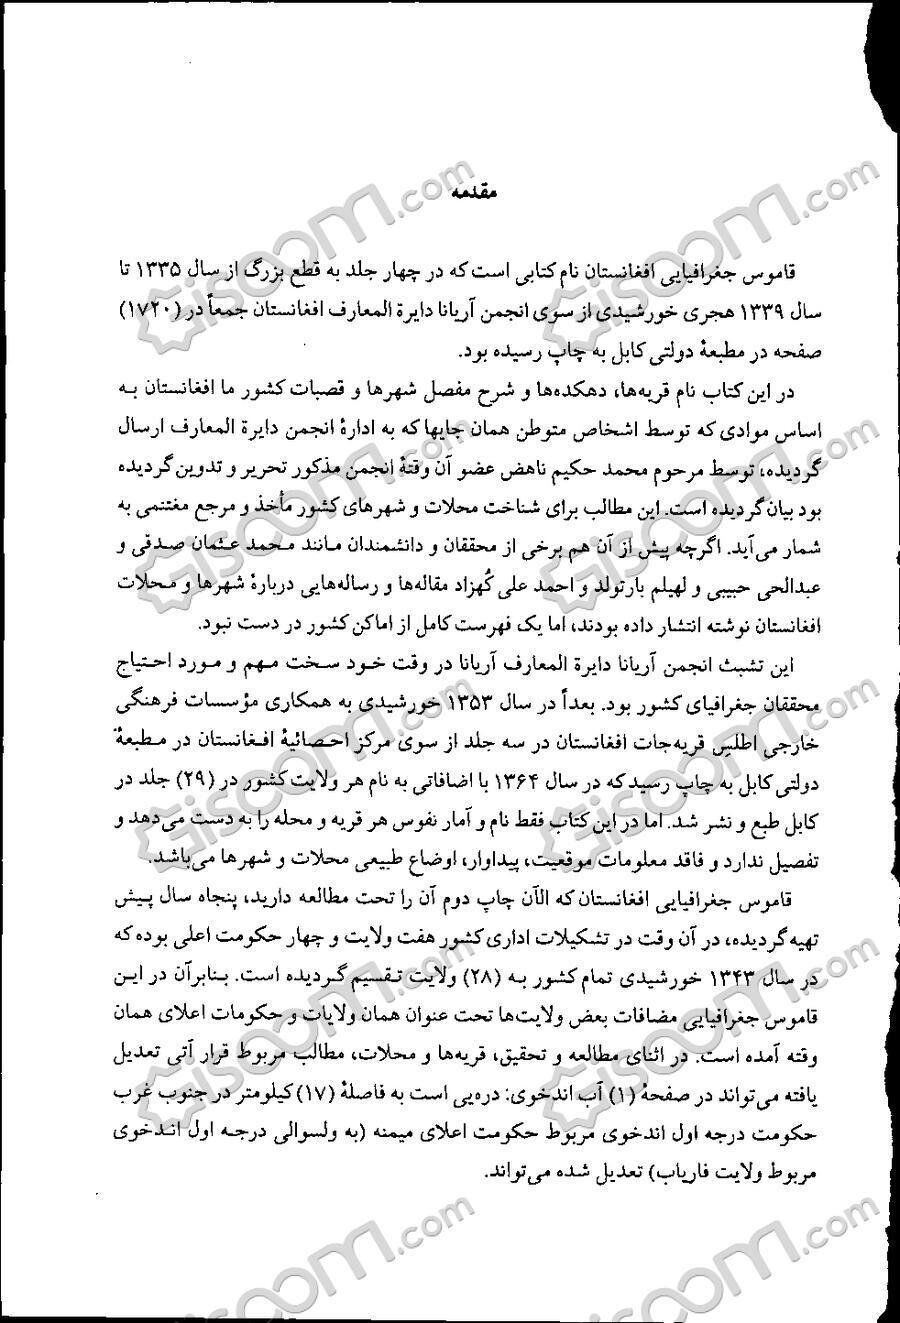 مقدمه
قاموس جغرافیایی افغانستان نام کتابی است که در چهار جلد به قطع بزرگ از سال ۱۳۳۵ تا
سال ۱۳۳۹ هجری خورشیدی از سوی انجمن آریانا دایرة المعارف افغانستان جمعاً در (۱۷۲۰)
صفحه در مطبعهٔ دولتی کابل به چاپ رسیده بود.
در این کتاب نام قریه‌ها، دهکده‌ها و شرح مفصل شهرها و قصبات کشور ما افغانستان به
اساس موادی که توسط اشخاص متوطن همان جایها که به ادارهٔ انجمن دایرة المعارف ارسال
گردیده، توسط مرحوم محمد حکیم ناهض عضو آن وقتهٔ انجمن مذکور تحریر و تدوین گردیده
بود بیان گردیده است. این مطالب برای شناخت محلات و شهرهای کشور مأخذ و مرجع مغتنمی به
شمار می‌آید. اگرچه پیش از آن هم برخی از محققان و دانشمندان مانند محمد عثمان صدقی و
عبدالحی حبیبی و لهیلم بارتولد و احمد علی کُهزاد مقاله‌ها و رساله‌هایی دربارهٔ شهرها و محلات
افغانستان نوشته انتشار داده بودند، اما یک فهرست کامل از اماکن کشور در دست نبود.
این تشبث انجمن آریانا دایرة المعارف آریانا در وقت خود سخت مهم و مورد احتیاج
محققان جغرافیای کشور بود. بعداً در سال ۱۳۵۳ خورشیدی به همکاری مؤسسات فرهنگی
خارجی اطلس قریه‌جات افغانستان در سه جلد از سوی مرکز احصائیهٔ افغانستان در مطبعهٔ
دولتی کابل به چاپ رسید که در سال ۱۳۶۴ با اضافاتی به نام هر ولایت کشور در (۲۹) جلد در
کابل طبع و نشر شد. اما در این کتاب فقط نام و آمار نفوس هر قریه و محله را به دست می‌دهد و
تفصیل ندارد و فاقد معلومات موقعیت، پیداوار، اوضاع طبیعی محلات و شهرها می‌باشد.
قاموس جغرافیایی افغانستان که الآن چاپ دوم آن را تحت مطالعه دارید، پنجاه سال پیش
تهیه گردیده، در آن وقت در تشکیلات اداری کشور هفت ولایت و چهار حکومت اعلی بوده که
در سال ۱۳۴۳ خورشیدی تمام کشور به (۲۸) ولایت تقسیم گردیده است. بنابرآن در این
قاموس جغرافیایی مضافات بعض ولایت‌ها تحت عنوان همان ولایات و حکومات اعلای همان
وقته آمده است. در اثنای مطالعه و تحقیق، قریه‌ها و محلات، مطالب مربوط قرار آتی تعدیل
یافته می‌تواند در صفحهٔ (۱) آب اندخوی: دره‌یی است به فاصلهٔ (۱۷) کیلومتر در جنوب غرب
حکومت درجه اول اندخوی مربوط حکومت اعلای میمنه (به ولسوالی درجه اول اندخوی
مربوط ولایت فاریاب) تعدیل شده می‌تواند.